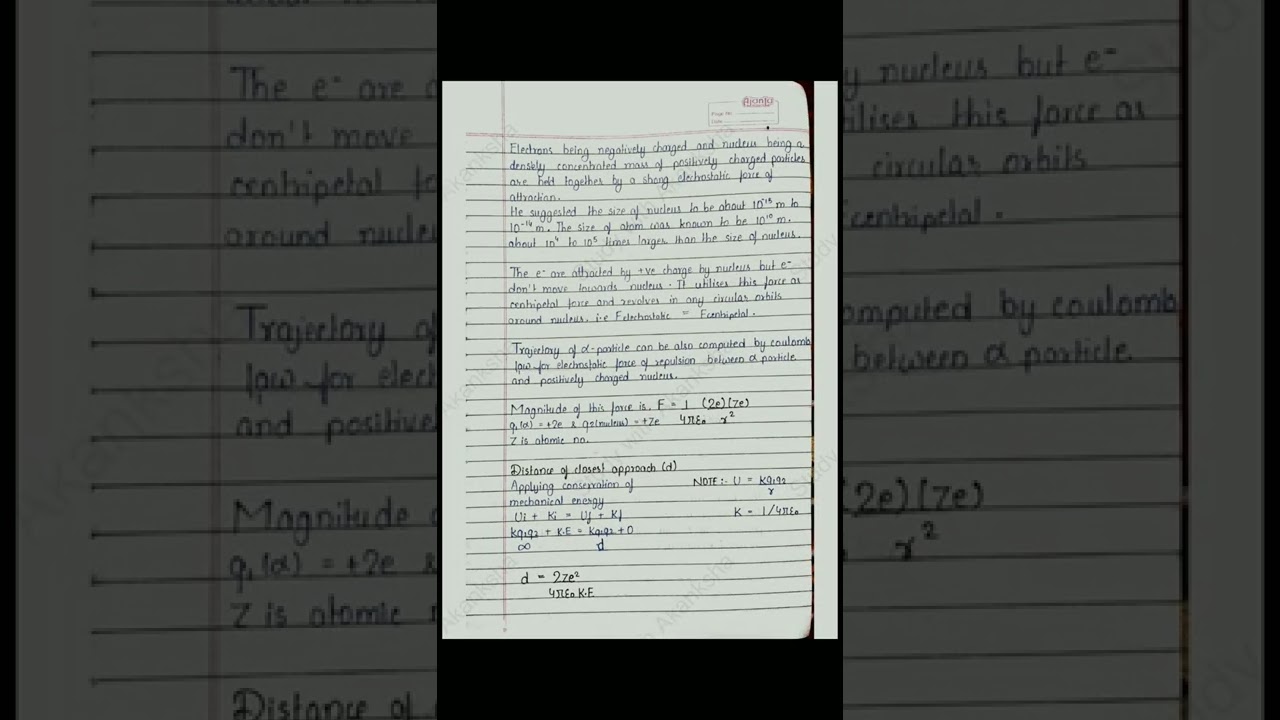 Ajanta
Page No.
Date
Electrons being negatively charged and nucleus being a
densely concentrated mass of positively charged particles
are held together by a strong electrostatic force of
attraction.
He suggested the size of nucleus to be about 10⁻¹⁵ m to
10⁻¹⁴ m. The size of atom was known to be 10¹⁰ m.
about 10⁴ to 10⁵ times larger than the size of nucleus.
The e⁻ are attracted by +ve charge by nucleus but e⁻
don't move towards nucleus. It utilises this force as
centripetal force and revolves in any circular orbits
around nucleus, i.e Felectrostatic = Fcentripetal.
Trajectory of α-particle can be also computed by coulomb
law for electrostatic force of repulsion between α particle
and positively charged nucleus.
Magnitude of this force is, F = 1 (2e)(Ze)
q₁(α) = +2e & q₂(nucleus) = +Ze 4πε₀ r²
Z is atomic no.
Distance of closest approach (d)
Applying conservation of NOTE:- U = kq₁q₂
mechanical energy r
Ui + Ki = Uf + Kf K = 1/4πε₀
kq₁q₂ + K.E = kq₁q₂ + 0
∞ d
d = 2Ze²
4πε₀ K.E